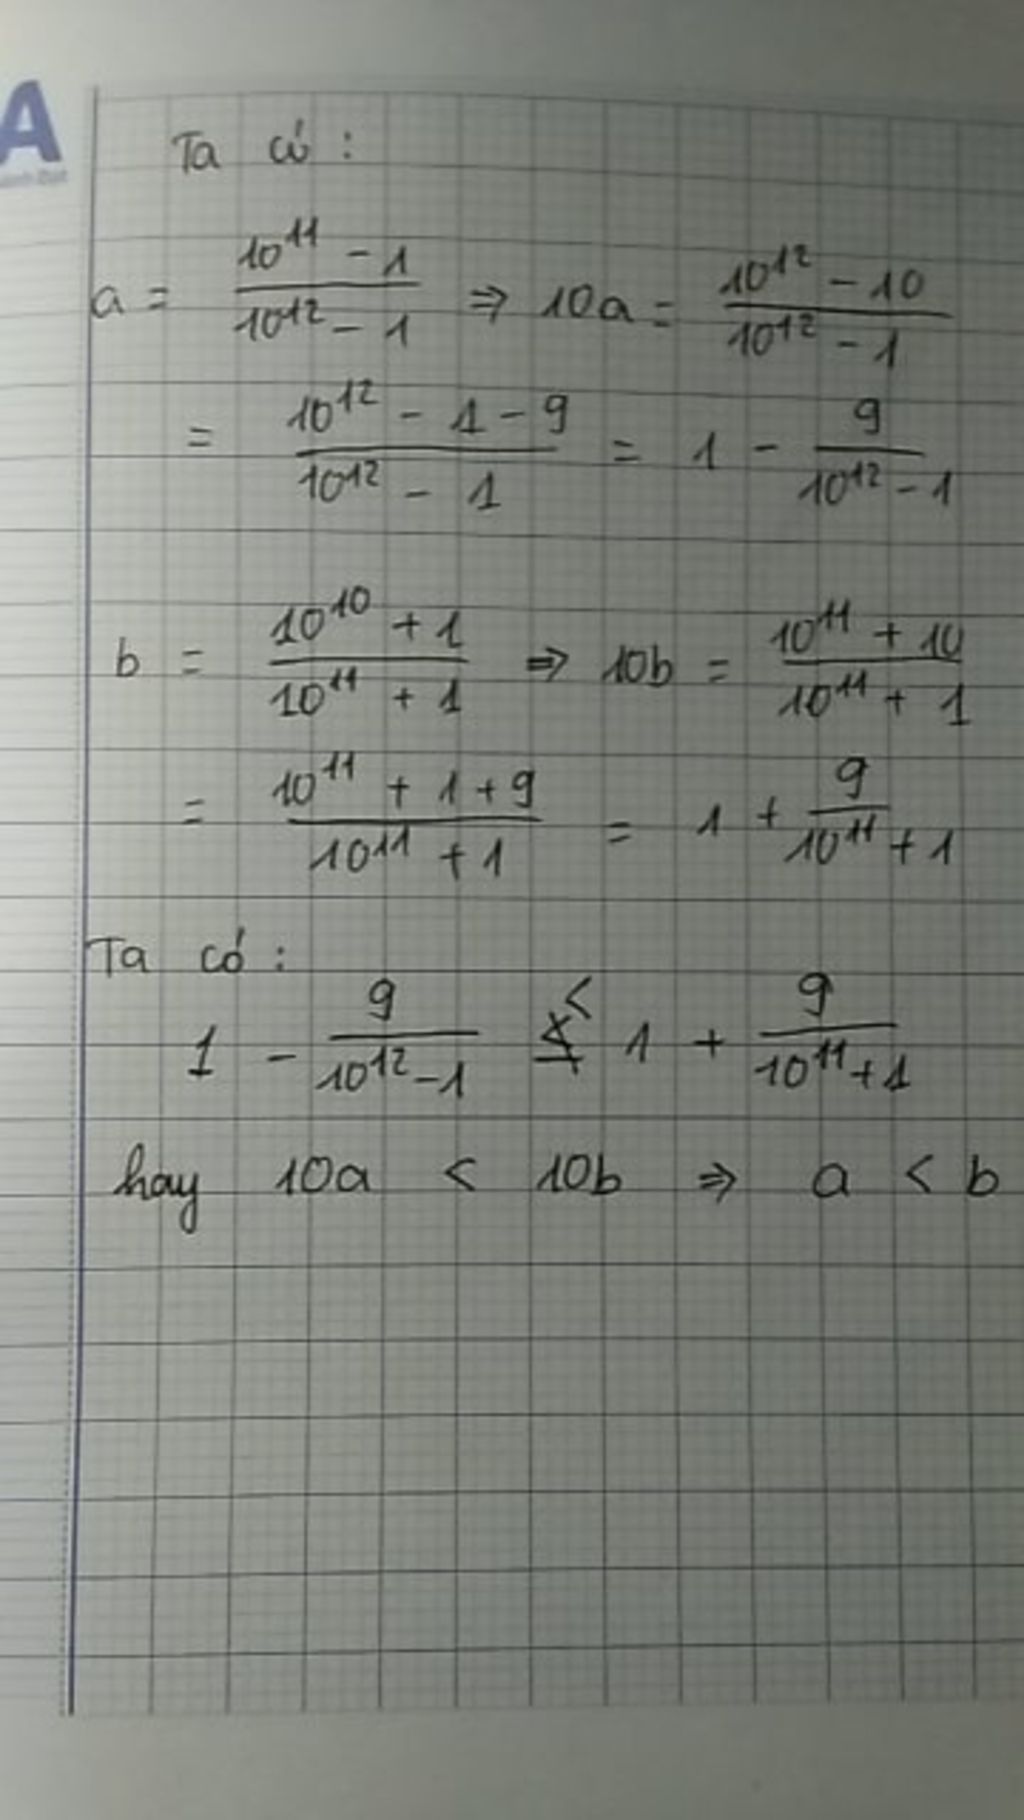 A
Ta có:
a = \frac{10^{11} - 1}{10^{12} - 1} ⇒ 10a = \frac{10^{12} - 10}{10^{12} - 1}
= \frac{10^{12} - 1 - 9}{10^{12} - 1} = 1 - \frac{9}{10^{12} - 1}
b = \frac{10^{10} + 1}{10^{11} + 1} ⇒ 10b = \frac{10^{11} + 10}{10^{11} + 1}
= \frac{10^{11} + 1 + 9}{10^{11} + 1} = 1 + \frac{9}{10^{11} + 1}
Ta có:
1 - \frac{9}{10^{12} - 1} < 1 + \frac{9}{10^{11} + 1}
hay 10a < 10b ⇒ a < b